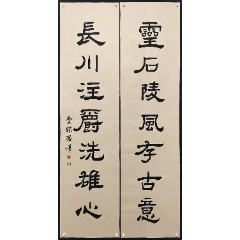 靈石陵風存古意
長川注爵洗雄心